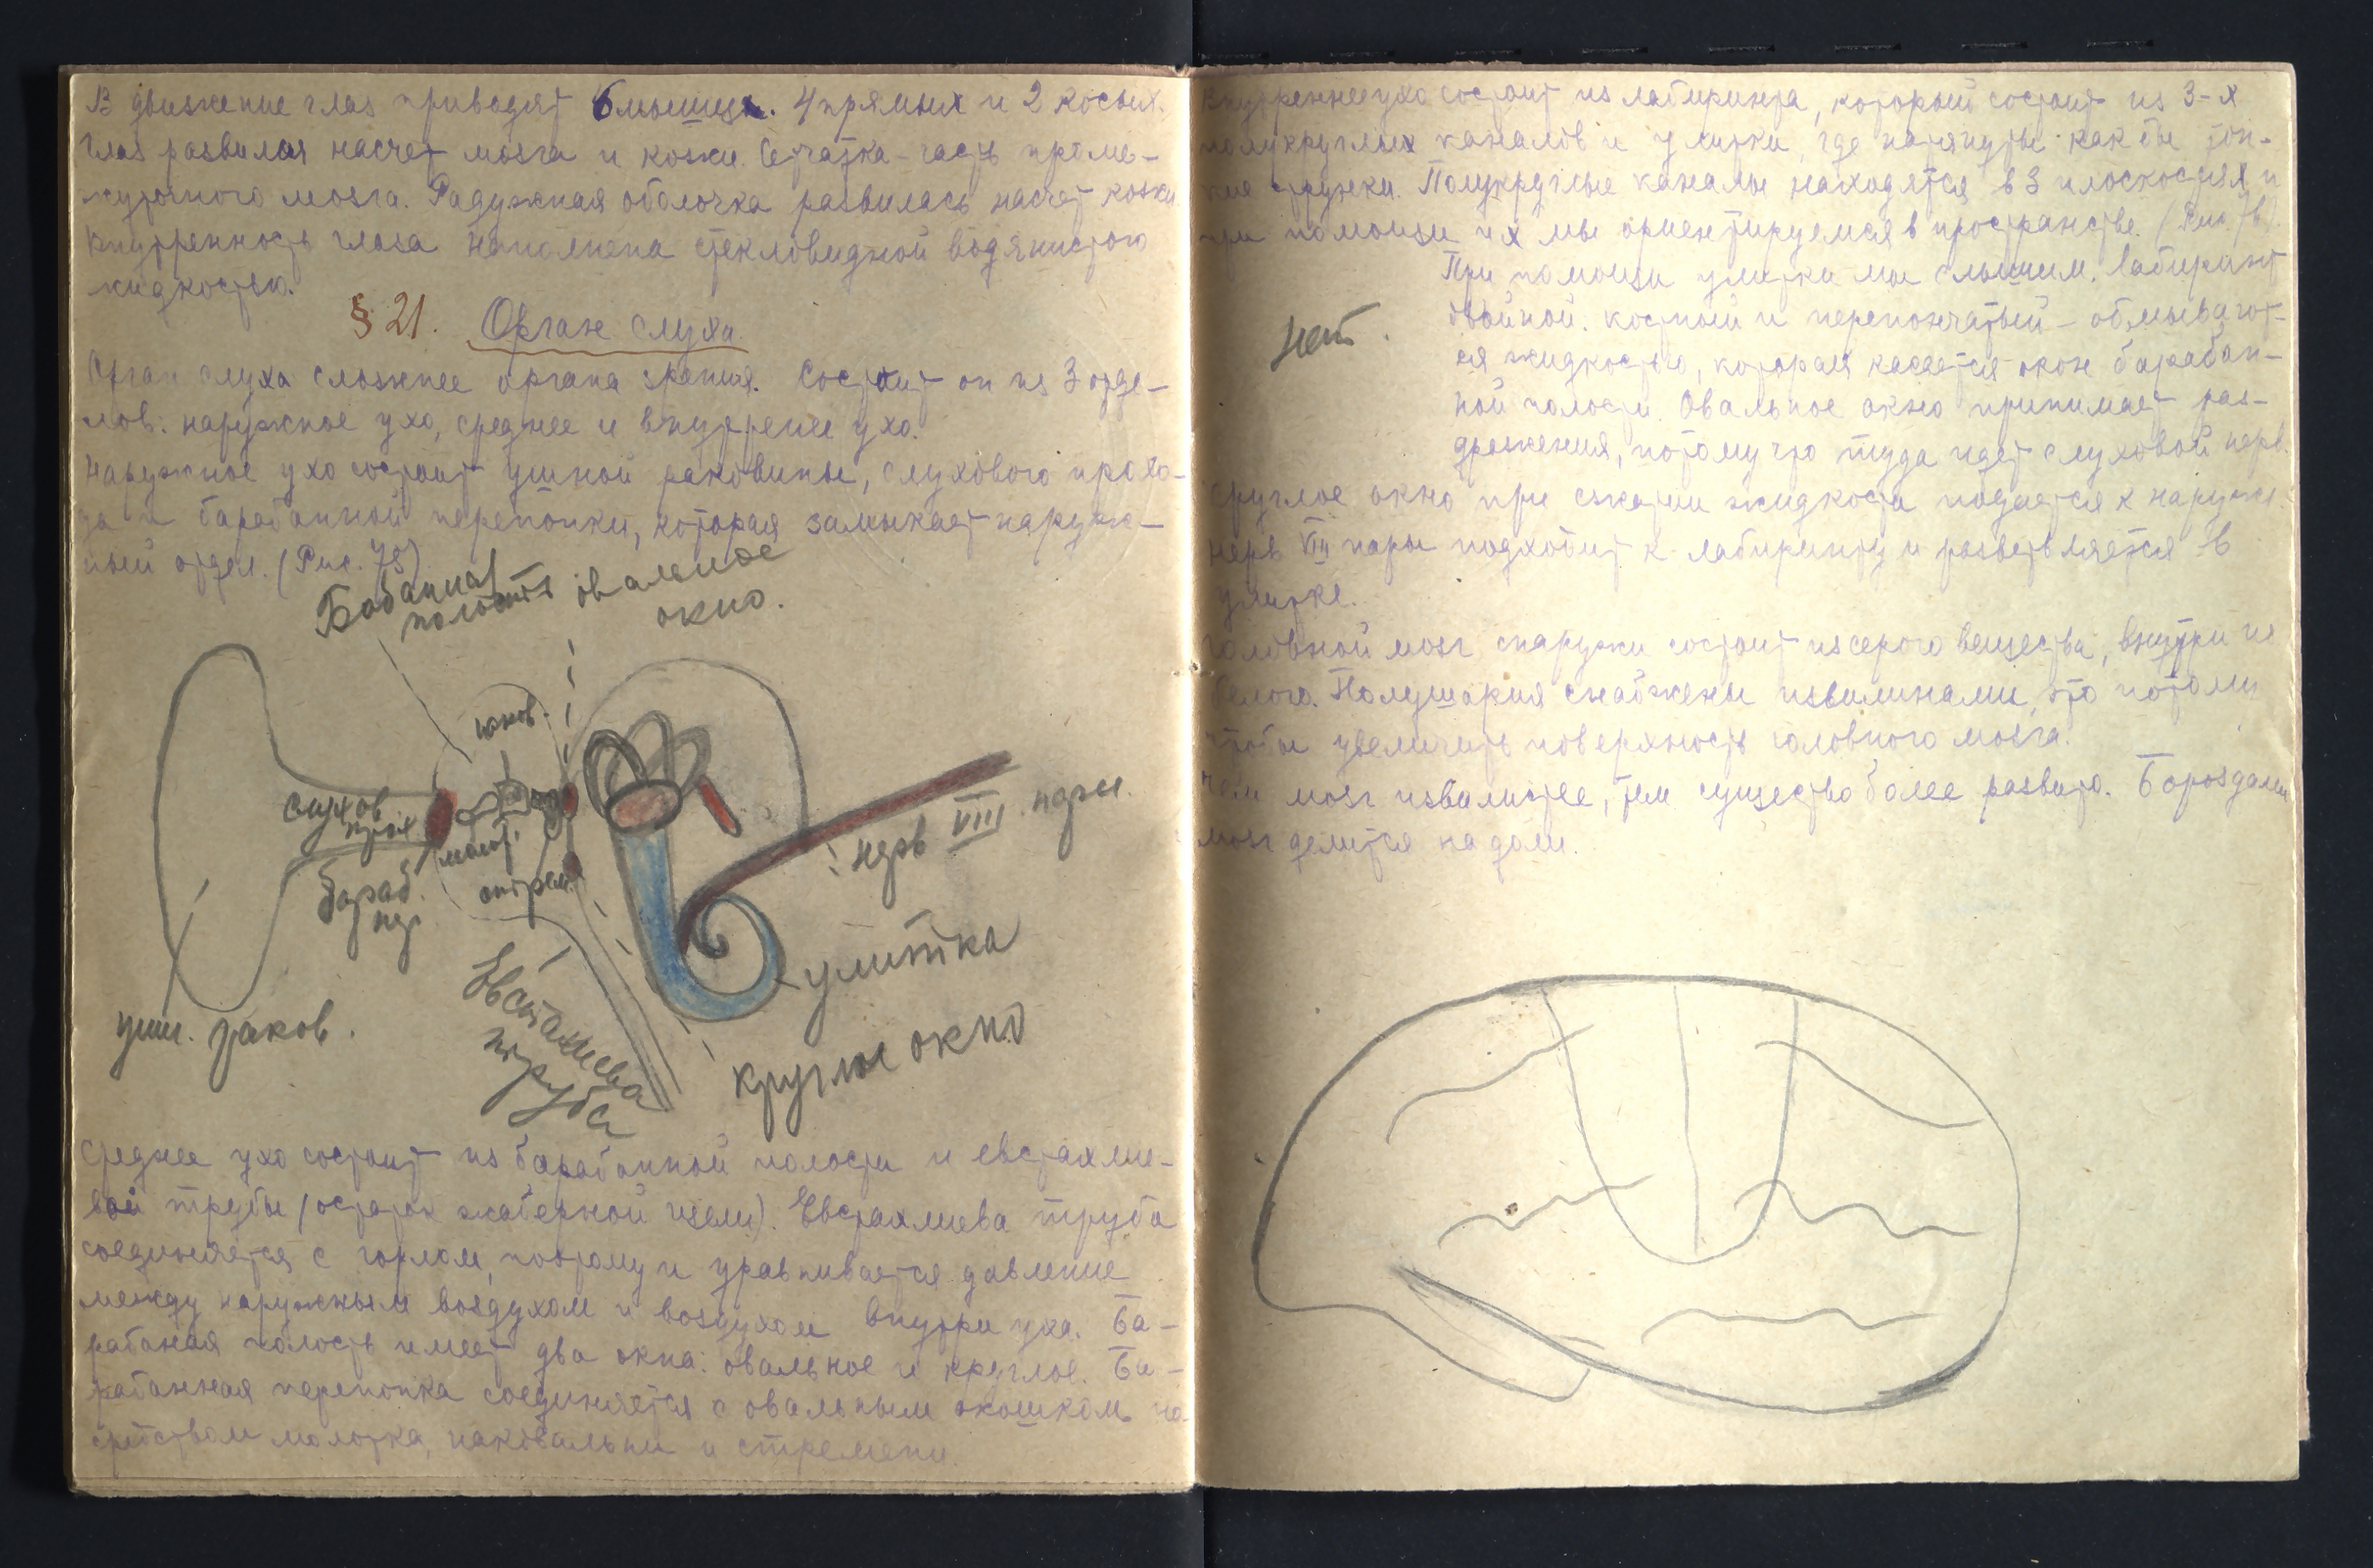 В движение глаз приводят 6 мышцы. 4 прямых и 2 косых.
Глаз развился насчет мозга и кожи. Сетчатка – часть проме-
жуточного мозга. Радужная оболочка развилась насчет кожи.
Внутренность глаза наполнена стекловидной водянистою
жидкостью.
§ 21. Орган слуха.
Орган слуха сложнее органа зрения. Состоит он из 3 отде-
лов: наружное ухо, среднее и внутренее ухо.
Наружное ухо состоит ушной раковины, слухового прохо-
да и барабанной перепонки, которая замыкает наруж-
ный отдел. (Рис. 75)
полость овальное
окно.
наков.
слухов
прох
молот.
бараб.
пер
стрем.
нерв VIII пары.
улитка
уш. раков.
Евстахиева
труба
круглое окно
Среднее ухо состоит из барабанной полости и евстахие-
вой трубы (остаток жаберной щели). Евстахиева труба
соединяется с горлом, поэтому и уравнивается давление
между наружным воздухом и воздухом внутри уха. Ба-
рабаная полость имеет два окна: овальное и круглое. Ба-
рабанная перепонка соединяется с овальным окошком по
средством молотка, наковальни и стремени.
Внутреннее ухо состоит из лабиринта, который состоит из 3-х
полукруглых каналов и улитки, где натянуты как бы тон-
кие струнки. Полукруглые каналы находятся в 3 плоскостях и
при помощи их мы ориентируемся в пространстве. (Рис. 76).
При помощи улитки мы слышим. Лабиринт
двойной: костный и перепончатый – обмывают-
ся жидкостью, которая касается окон барабан-
ной полости. Овальное окно принимает раз-
дражения, потому что туда идет слуховой нерв.
нет.
Круглое окно при сжатии жидкости подается к наружи.
Нерв VIII пары подходит к лабиринту и разветвляется в
улитке.
Головной мозг снаружи состоит из серого вещества, внутри из
белого. Полушария снабжены извилинами, это потому
чтобы увеличить поверхность головного мозга.
Чем мозг извилистее, тем существо более развито. Бороздами
мозг делится на доли.